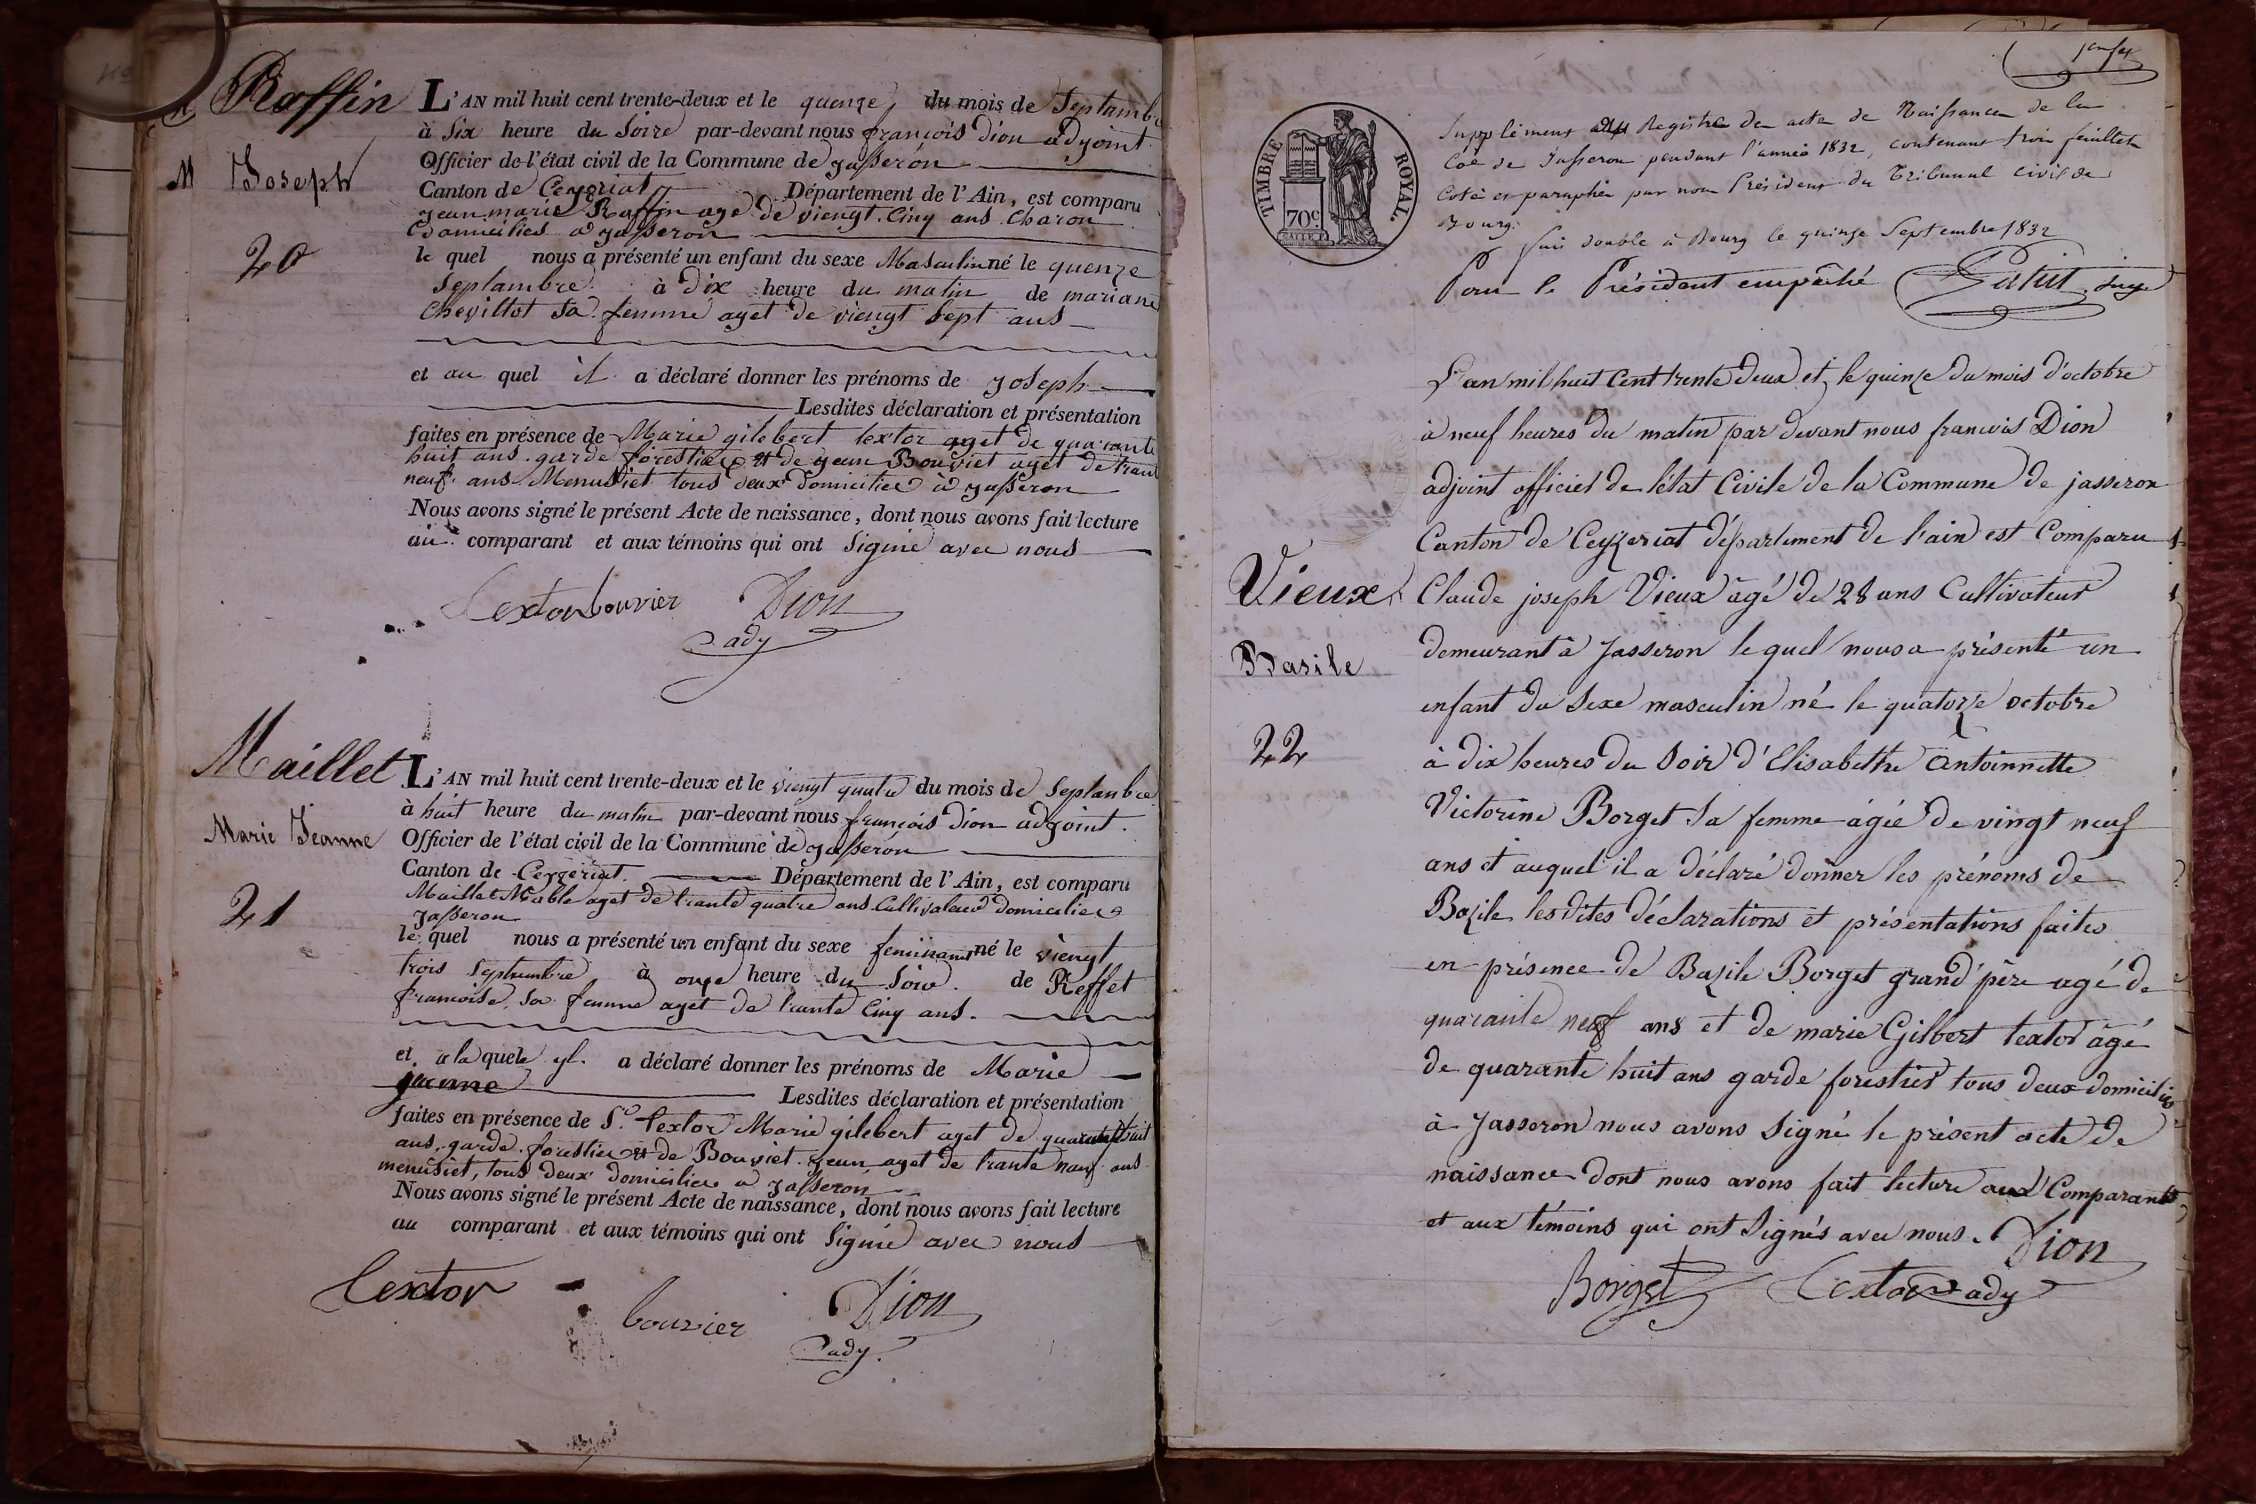 Raffin
M Joseph
20
L'AN mil huit cent trente-deux et le quenze du mois de Septambre
à Six heure du Soire par-devant nous françois Dion adyoint
Officier de l'état civil de la Commune de yasseron
Canton de Ceyzeriat Département de l'Ain, est comparu
yean marie Raffin age de viengt. Cinq ans Charon
Domicilies a yasseron
le quel nous a présenté un enfant du sexe Masculin né le quenze
Septambre à Dix heure du matin de mariane
Chevillot Sa femme aget de viengt Sept ans
et au quel il a déclaré donner les prénoms de yoseph
Lesdites déclaration et présentation
faites en présence de Marie gilebert textor aget de quarante
huit ans garde forestier et de yean Bouviet aget de trant
neuf ans Menusiet tous deux Domicilier à yasseron
Nous avons signé le présent Acte de naissance, dont nous avons fait lecture
au comparant et aux témoins qui ont Signié avec nous
Textor bouvier Dion
ady
Maillet
Marie Jeanne
21
L'AN mil huit cent trente-deux et le viengt quatre du mois de Septanbre
à huit heure du matin par-devant nous françois Dion adyoint.
Officier de l'état civil de la Commune de yasseron
Canton de Ceyzeriat. Département de l'Ain, est comparu
Maillet aget de trante quatre ans Cultivateur Domicilier a
yasseron
le quel nous a présenté un enfant du sexe né le viengt
trois Septembre à onze heure du Soire. de Reffet
francoise. sa femme aget de trante Cinq ans.
et a la quele yl. a déclaré donner les prénoms de Marie
jeanne
Lesdites déclaration et présentation
faites en présence de Sr. textor Marie gilebert aget de quarante huit
ans, garde forestier et de Bouviet. yean aget de trante neuf ans
menusiet, tous deux Domicilier a yasseron
Nous avons signé le présent Acte de naissance, dont nous avons fait lecture
au comparant et aux témoins qui ont Signié avec nous
Textor
bouvier
Dion
ady.
TIMBRE ROYAL.
70c
Supplément au Registre des actes de Naissances de la
Coe de Jasseron pendant l'année 1832, contenant trois feuillets
Coté et paraphés par nous Président du Tribunal civil de
Bourg.
fait double à Bourg le quinze Septembre 1832
Pour le Président empêché juge
Vieux
Basile
22
L'an mil huit Cent trente deux et le quinze du mois d'octobre
à neuf heures du matin par devant nous francois Dion
adjoint officier de l'état Civile de la Commune de jasseron
Canton de Ceyzeriat département de l'ain est Comparu
Claude joseph Vieux âgé de 28 ans Cultivateur
demeurant à Jasseron le quel nous a présenté un
enfant du Sexe masculin né le quatorze octobre
à dix heures du Soir d'Elisabethe Antoinnette
Victorine Borget Sa femme âgée de vingt neuf
ans et auquel il a déclaré donner les prénoms de
Bazile les dites déclarations et présentations faites
en présence de Bazile Borget grand'père agé de
quarante neuf ans et de marie Gilbert textor âgé
de quarante huit ans garde forestier tous deux domiciliés
à Jasseron nous avons Signé le présent acte de
naissance dont nous avons fait lecture aux Comparants
et aux témoins qui ont Signés avec nous. Dion
Borget Textor ady